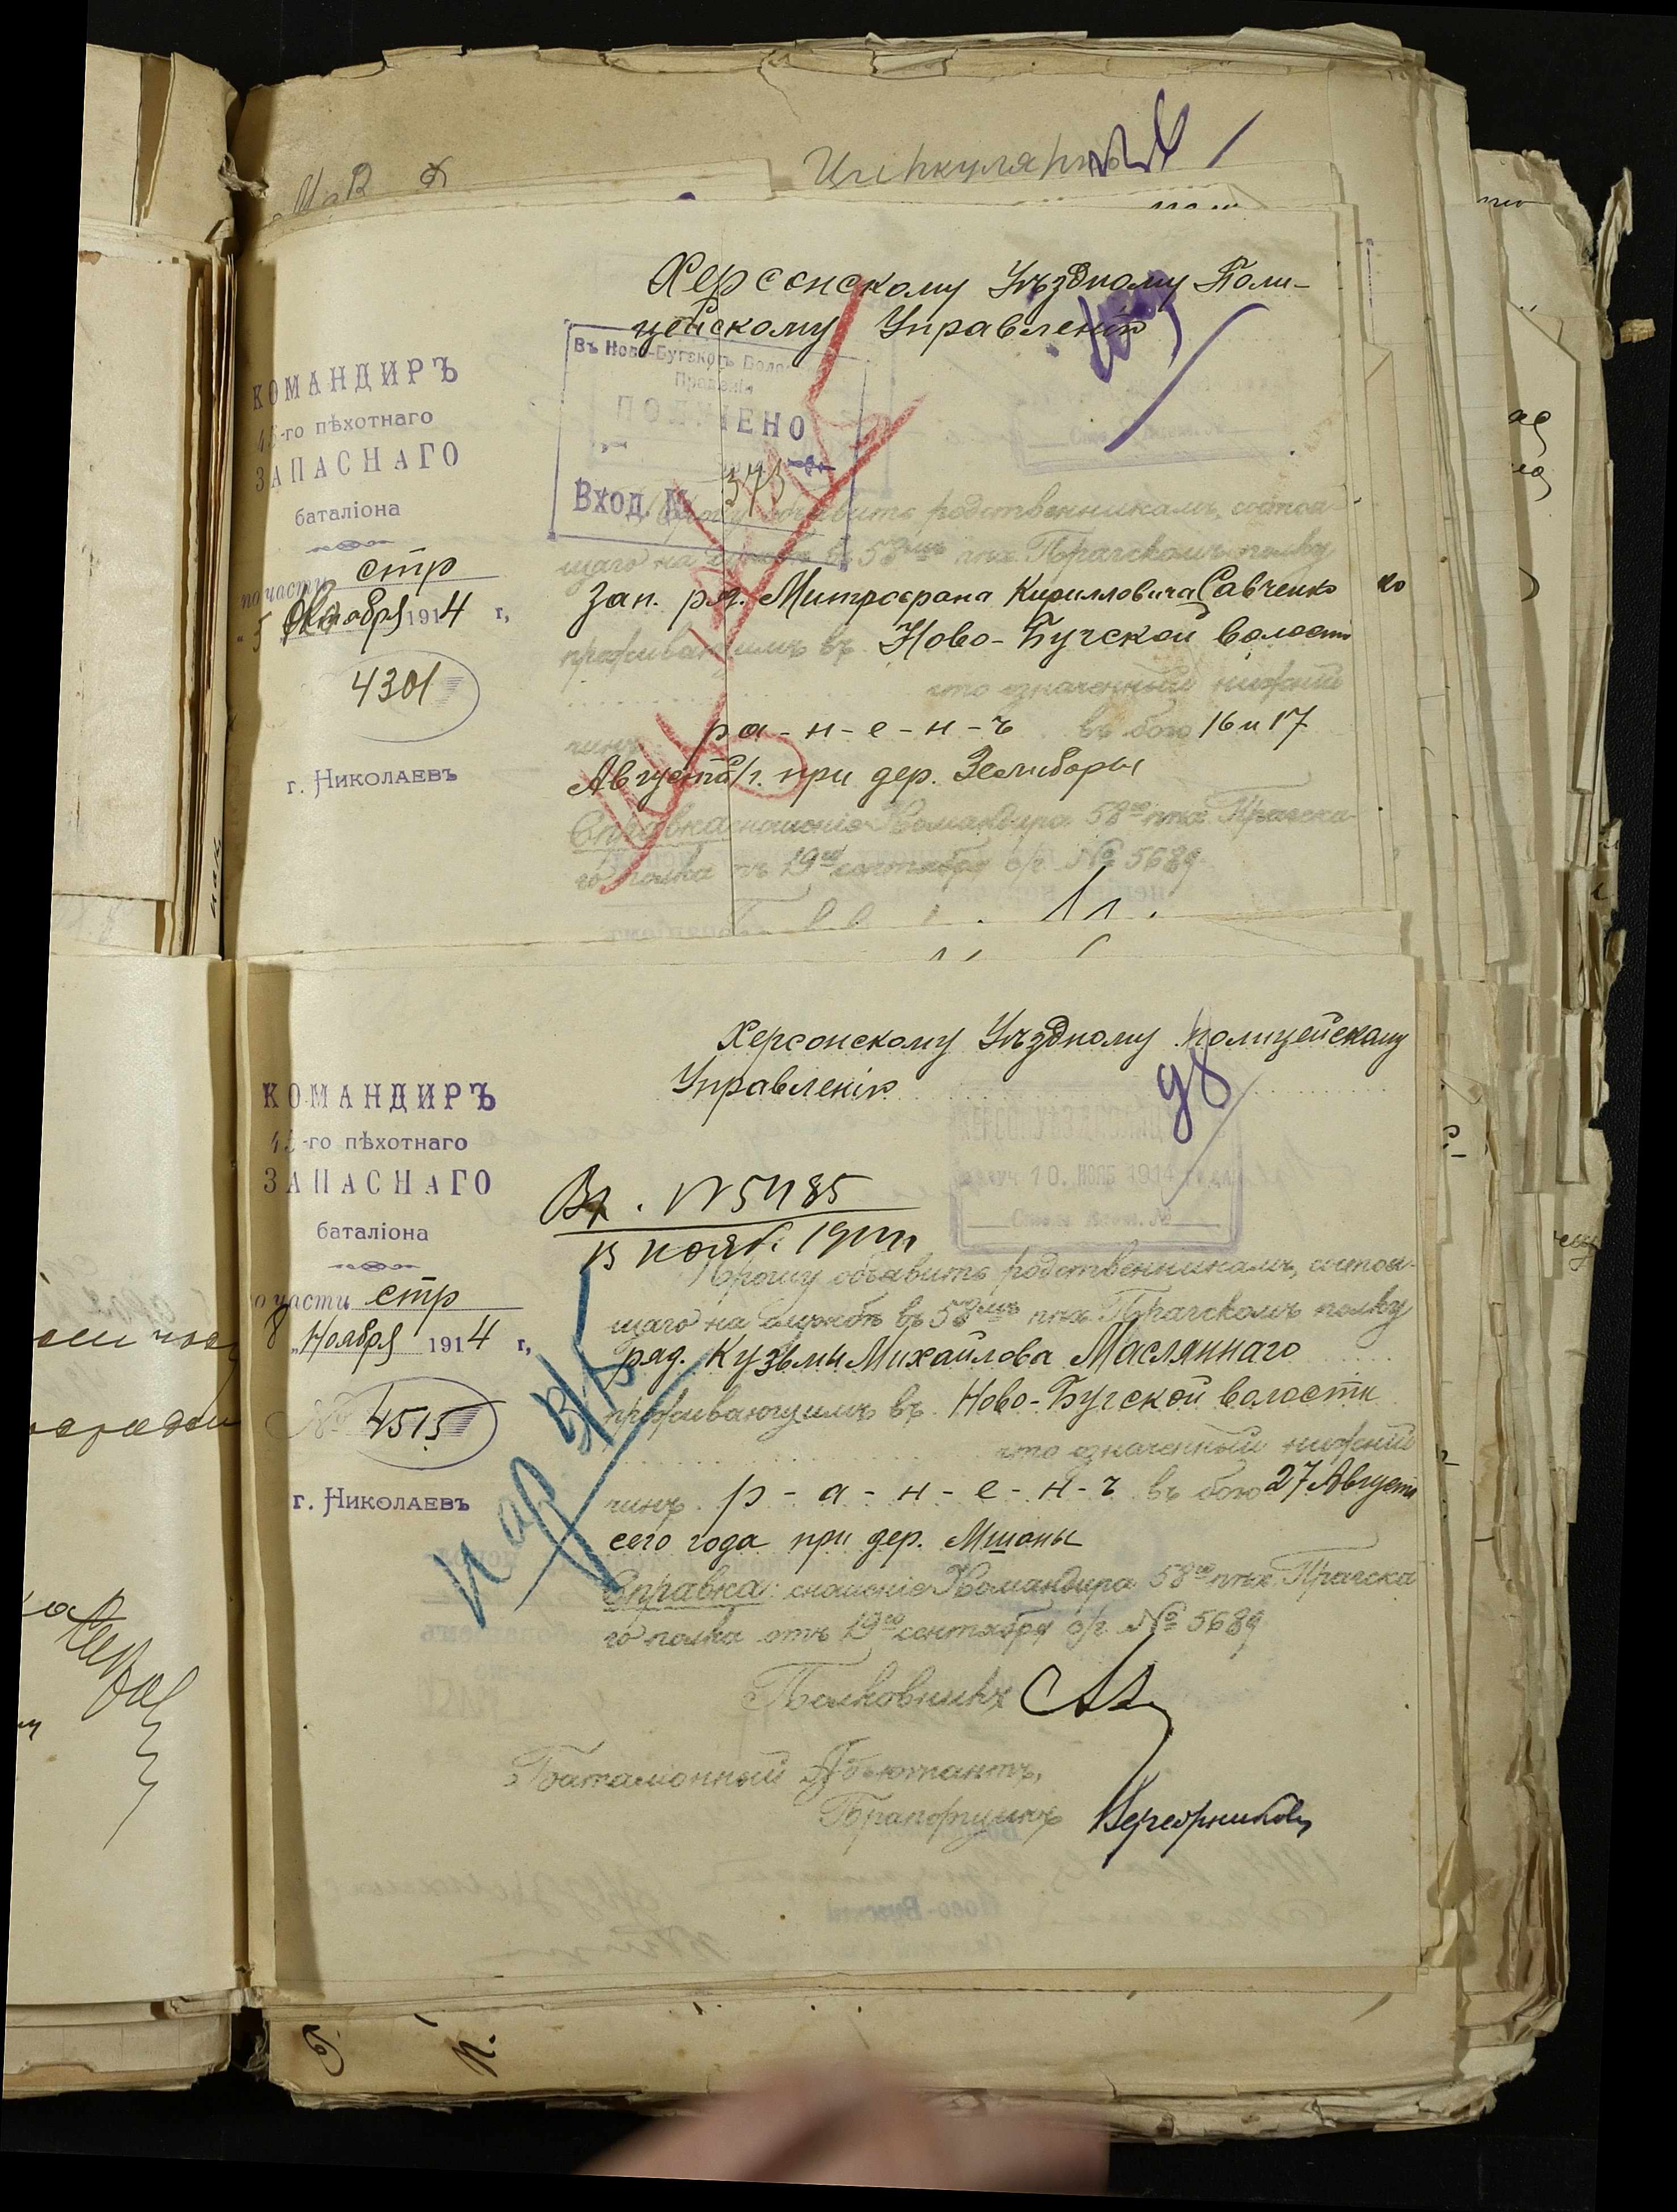 Циркулярно
Херсонскому Уѣздному Поли-
цейскому Управленію
Въ Ново-Бугскомъ Воло
Правленіи
ПОЛУЧЕНО
Вход. № 373
КОМАНДИРЪ
45-го пѣхотнаго
ЗАПАСНАГО
баталіона
по части стр
"5 Октября 1914 г,
4301
г. НИКОЛАЕВЪ
Прошу объявить родственникамъ, состоя-
щаго на службѣ въ 58мъ пѣх. Прагскомъ полку
Зап. ряд. Митрофана Кирилловича Савченко
проживающимъ въ Ново-Бугской волости
что означенный нижній
чинъ р а - н - е - н - ъ въ бою 16 и 17
Августа с/г. при дер. Желиборы
Справка: сношеніе Командира 58го пѣх. Прагска-
го полка отъ 19го сентября с/г. № 5689
Херсонскому Уѣздному полицейскому
Управленію
98
КОМАНДИРЪ
45-го пѣхотнаго
ЗАПАСНАГО
баталіона
по части стр
"8 Ноября 1914 г,
№ 4515
г. НИКОЛАЕВЪ
получ 10. НОЯБ 1914
Вх. № 5485
13 нояб. 1914
Прошу объявить родственникамъ, состоя-
щаго на службѣ въ 58мъ пѣх. Прагскомъ полку
ряд. Кузьмы Михайлова Маслянного
проживающимъ въ Ново-Бугской волости
что означенный нижній
чинъ р - а - н - е - н - ъ въ бою 27 Августа
сего года при дер. Мшаны
Справка: сношеніе Командира 58го пѣх. Прагска
го полка отъ 19го сентября с/г. № 5689
Полковникъ
Баталіонный Адъютантъ,
Прапорщикъ